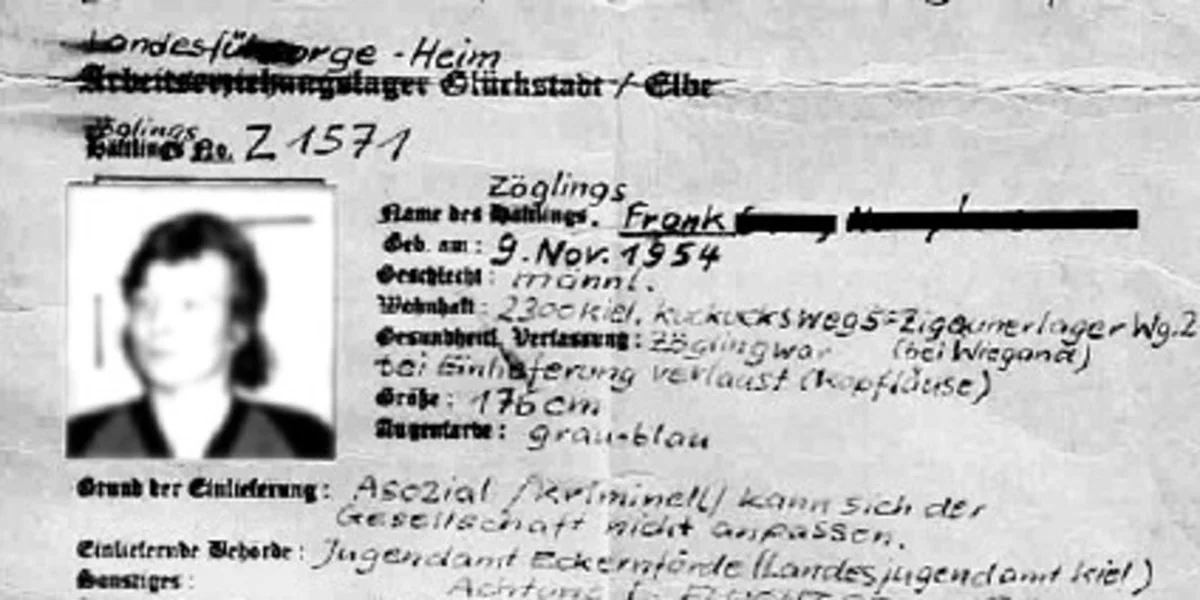 Landesfürsorge-Heim
Arbeitserziehungslager Glückstadt / Elbe
Zöglings
Häftlings No. Z 1571
Zöglings
Name des Häftlings. Frank
Geb. am: 9. Nov. 1954
Geschlecht: männl.
Wohnhaft: 2300 Kiel, Kuckucksweg 5=Zigeunerlager Wg.2
Gesundheitl. Verfassung: Zögling war (bei Wiegand)
bei Einlieferung verlaust (Kopfläuse)
Größe: 176 cm
Augenfarbe: grau-blau
Grund der Einlieferung: Asozial /kriminell/ kann sich der
Gesellschaft nicht anpassen.
Einliefernde Behörde: Jugendamt Eckernförde (Landesjugendamt Kiel)
Sonstiges:
Achtung